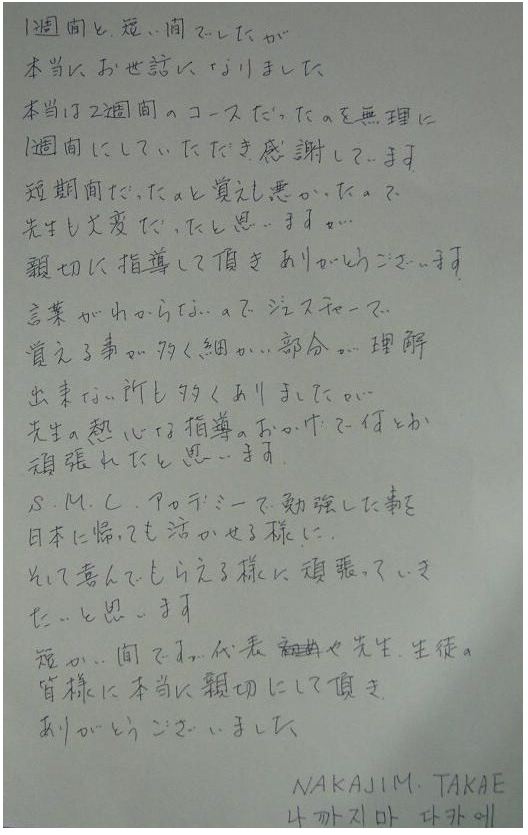 1週間と、短い間でしたが
本当に、お世話に、なりました、
本当は2週間のコースだったのを無理に
1週間にしていただき感謝しています
短期間だったのと覚えも悪かったので
先生も大変だったと思いますが
親切に指導して頂きありがとうございます
言葉がわからないのでジェスチャーで
覚える事が多く細かい部分が理解
出来ない所も多くありましたが
先生の熱心な指導のおかげで何とか
頑張れたと思います.
S.M.C.アカデミーで勉強した事を
日本に帰っても活かせる様に.
そして喜んでもらえる様に頑張っていき
たいと思います
短かい間ですが代表や先生、生徒の
皆様に本当に親切にして頂き
ありがとうございました、
NAKAJIM. TAKAE
나까지마 다카에